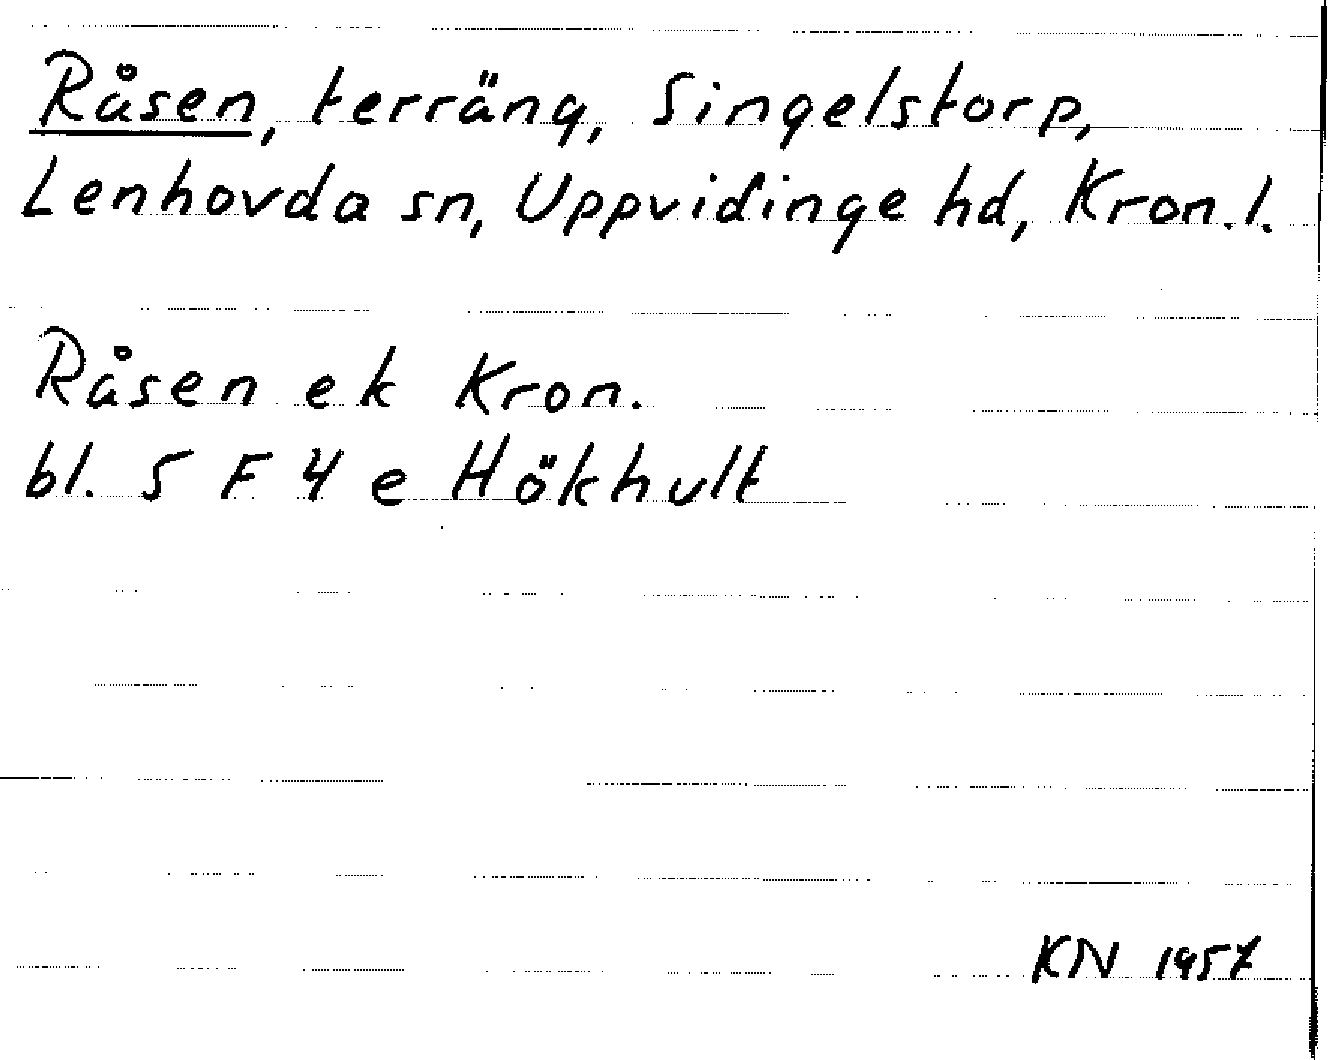 Råsen, terräng, Singelstorp,
Lenhovda sn, Uppvidinge hd, Kron.l.
Råsen ek Kron.
bl. 5 F 4 e Hökhult
KN 1957